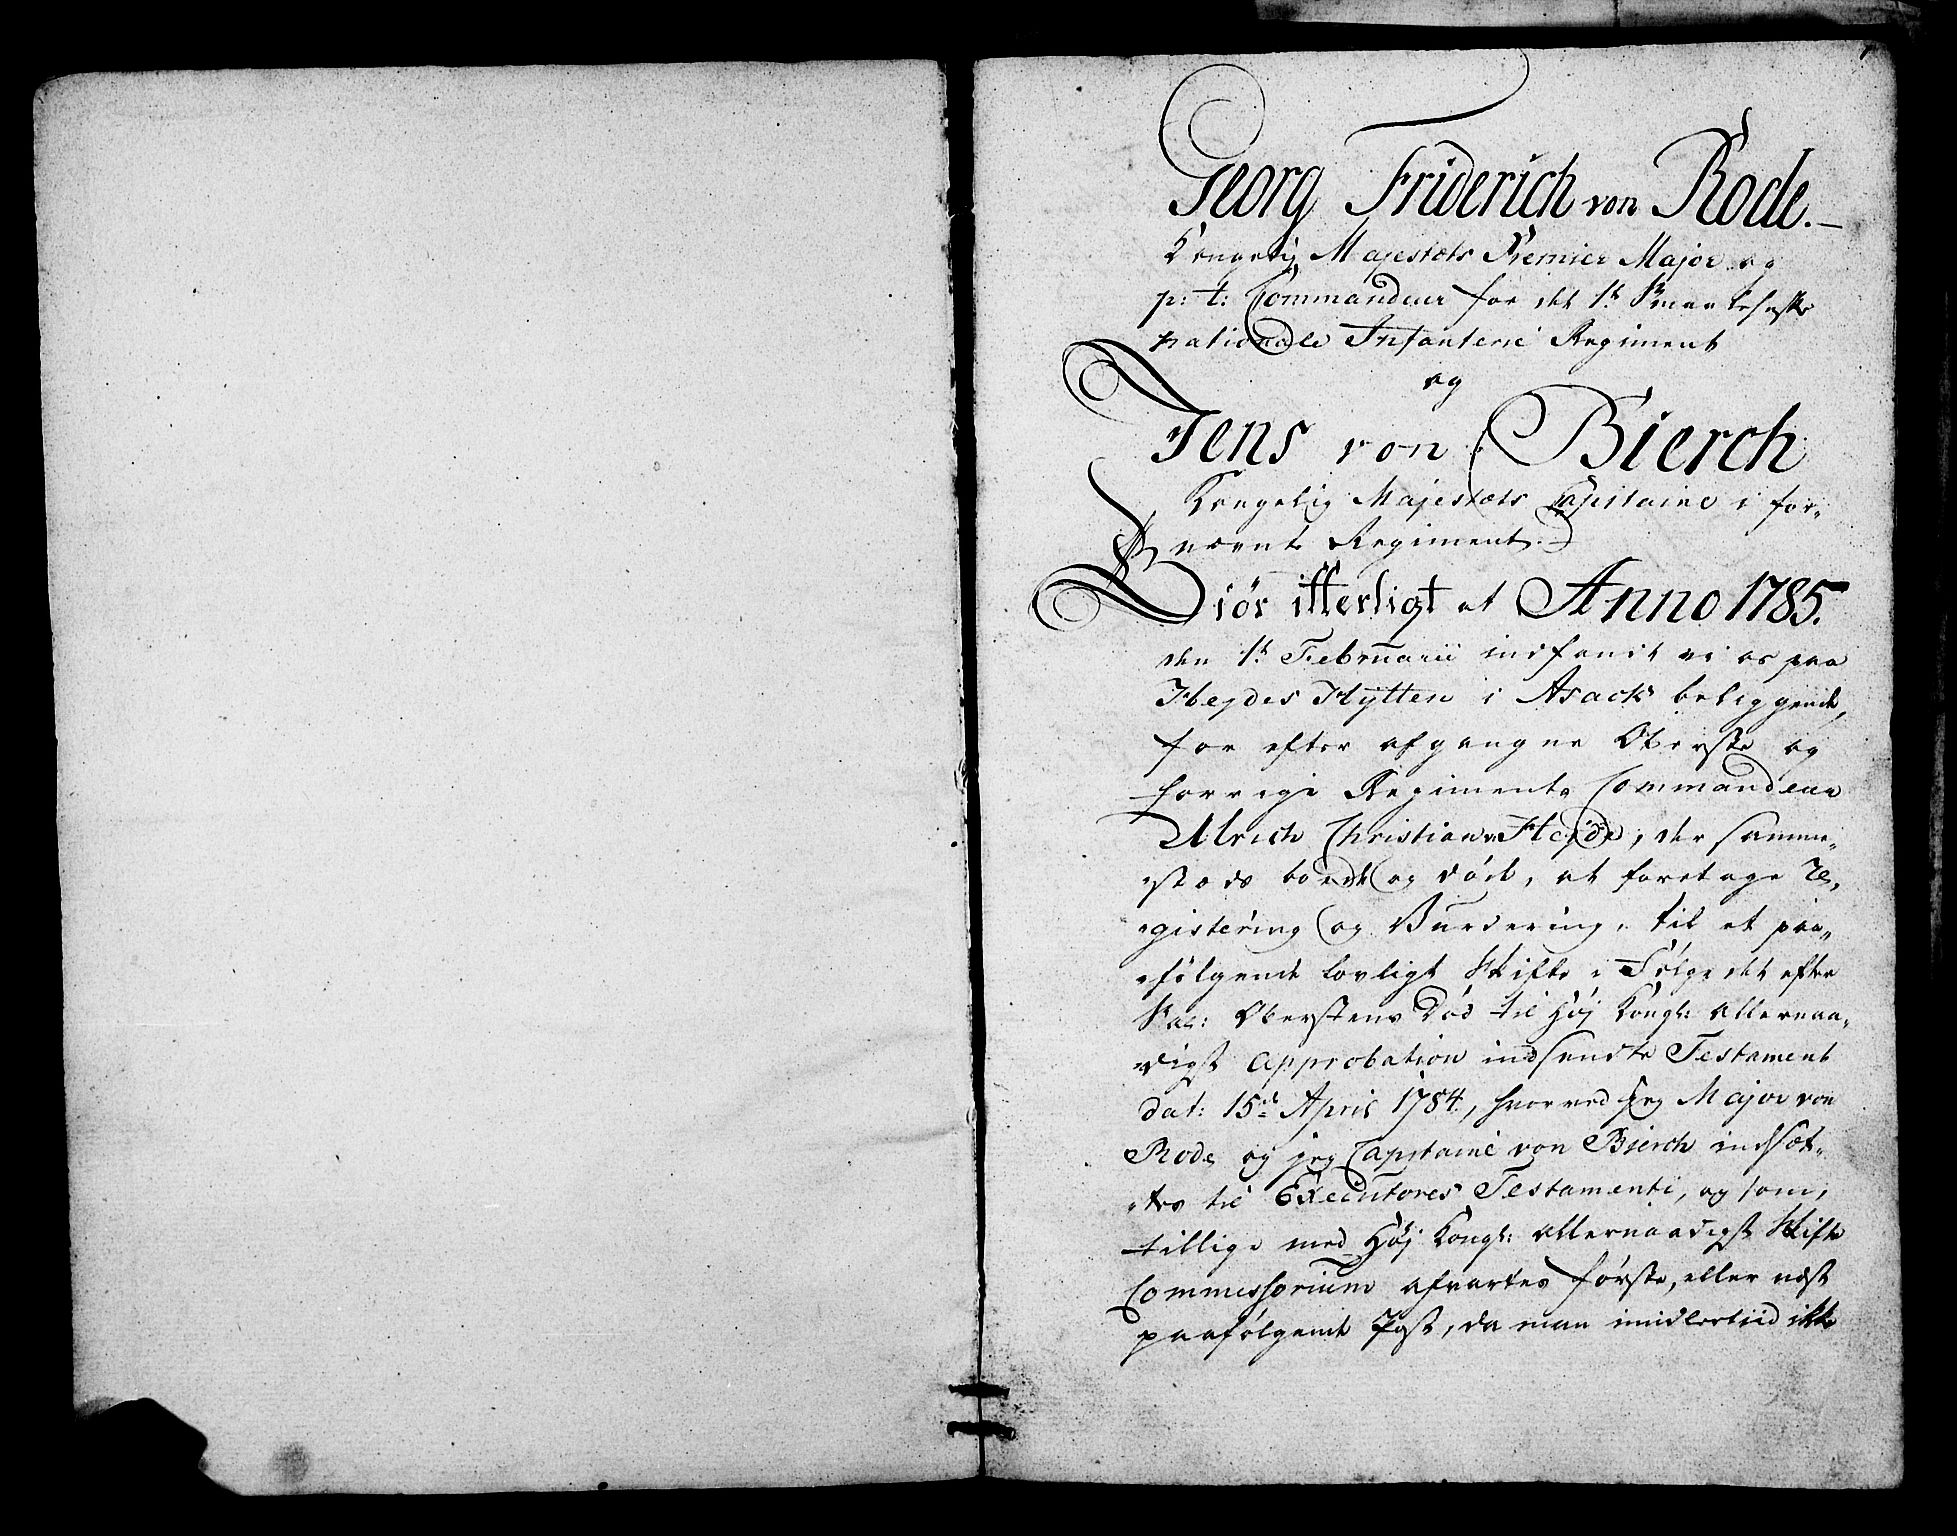 Georg Friderich von Rode.
Kongelig Majestæts Premier Major og
p: t: Commandeur for det 1te Smaalehnske
nationale Infanterie Regiment
og
Jens von Bierch
Kongelig Majestæts Capitaine i for„
nævnte Regiment.
Giör itterligt at Anno 1785.
den 1te Februarii indfandt vi os paa
Heydes Hytten i Asack beliggende,
for efter afgangne Oberste og
forrige Regiments Commandeur
Ulrich Christian v. Heyde, der samme„
„stæds boede og döde, at foretage Re„
„gistering og Vurdering, til et paa„
„fölgende lovligt Skifte i Fölge det efter
Sal: Oberstens Död til Höj Kongl: allernaa„
digst approbation indsendte Testament
dat: 15de April 1784, hvorved jeg Major von
Rode og jeg Capitaine von Bierch indsæt„
„tes til Executores Testamenti, og som,
tillige med Höj Kongl: allernaadigst Skifte
Commissorium afvartes förste, eller næst
paafölgende Post, da man imidlertiid ikke